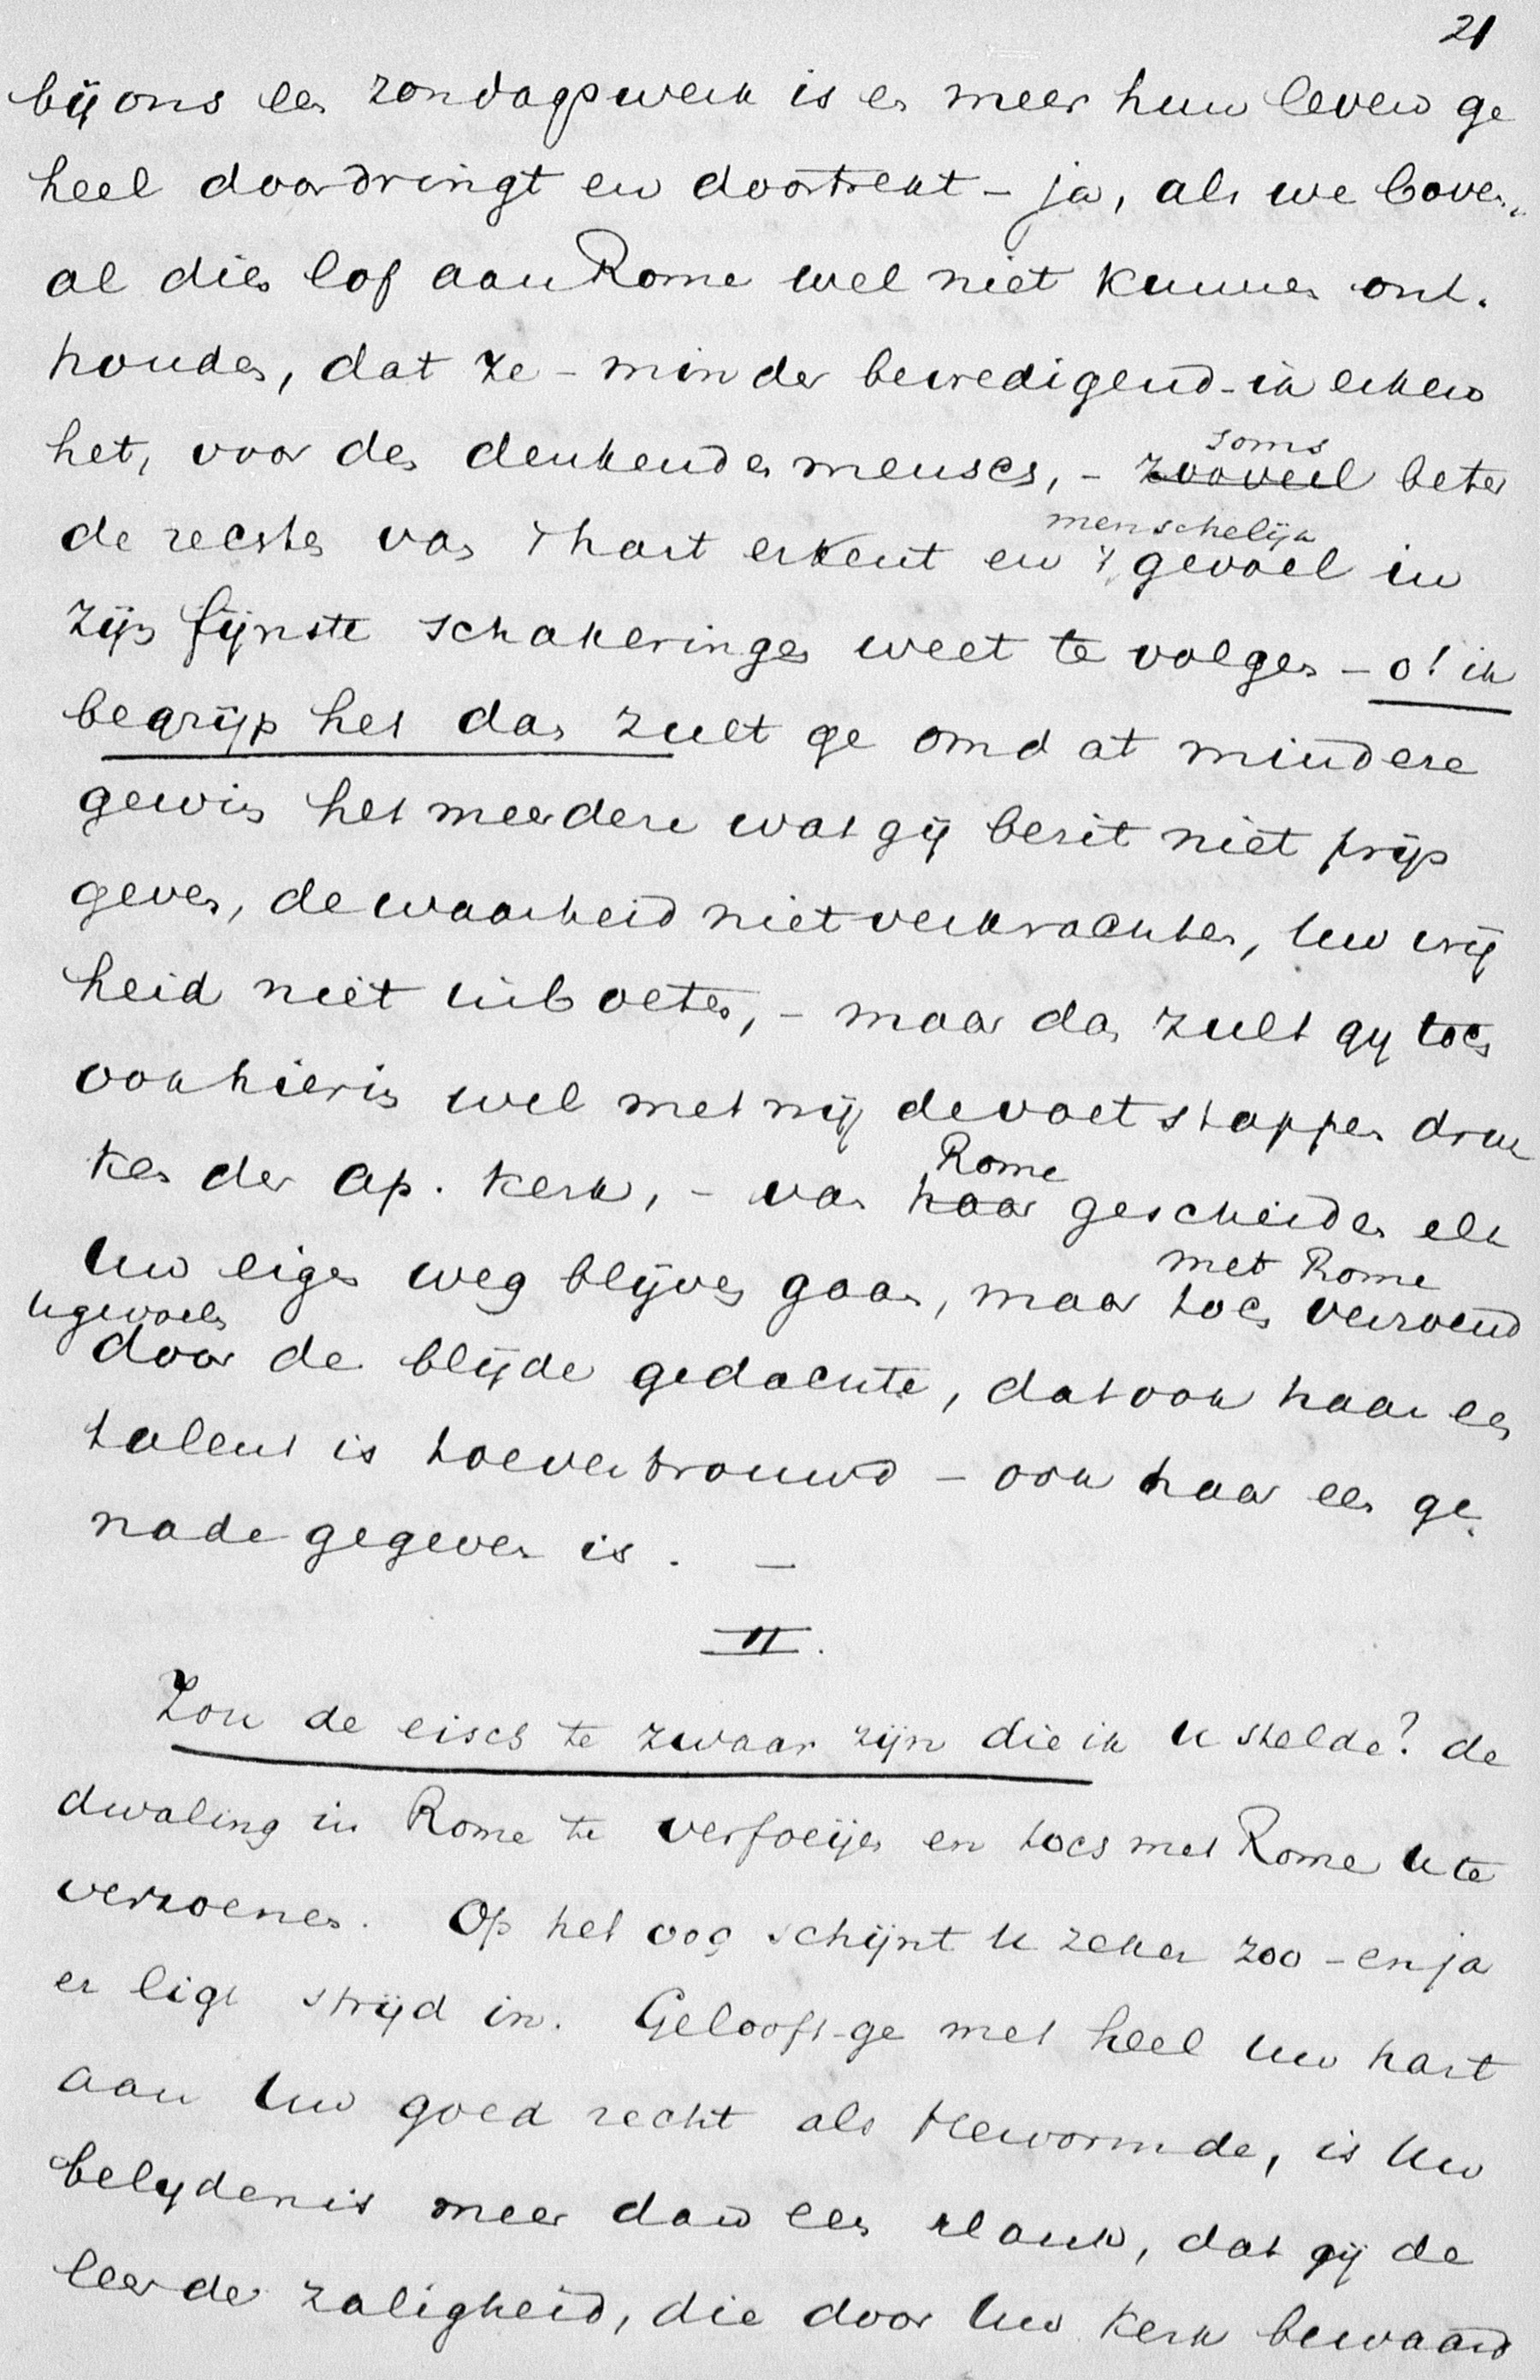 21
bij ons een zondagswerk is er meer hun leven ge
heel doordringt en doortrekt – ja, als we boven
al dien lof aan Rome wel niet kunnen ont-
houden, dat ze – minder bevredigend – ik erken
het, voor den denkenden mensch, – ~~zooveel~~ soms beter
de rechten van 't hart erkent en 't menschelijk gevoel in
zijn fijnste schakeringen weet te volgen – o! ik
begrijp het dan zult ge om dat mindere
gewis het meerdere wat gij bezit niet prijs
geven, de waarheid niet verkrachten, Uw vrij
heid niet inboeten, – maar dan zult gij toch
ook hierin wel met mij de voetstappen druk
ken der Ap. kerk, – van ~~haar~~ Rome gescheiden elk
Uw eigen weg blijven gaan, maar toch met Rome verzoend
U gevoelen door de blijde gedachte, dat ook haar een
talent is toevertrouwd – ook haar een ge-
nade gegeven is. –
II.
Zou de eisch te zwaar zijn die ik U stelde? de
dwaling in Rome te verfoeijen en toch met Rome U te
verzoenen. Op het oog schijnt U zeker zoo – en ja
er ligt strijd in. Gelooft ge met heel Uw hart
aan Uw goed recht als Hervormde, is Uw
belydenis meer dan een klank, dat gij de
leer der zaligheid, die door Uw kerk bewaard